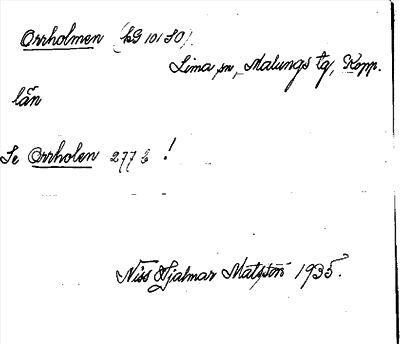 Orrholmen (KG 10180).
Lima sn, Malungs tg, Kopp.
län
Se Orrholen 277 b !
Niss Hjalmar Matsson 1935.